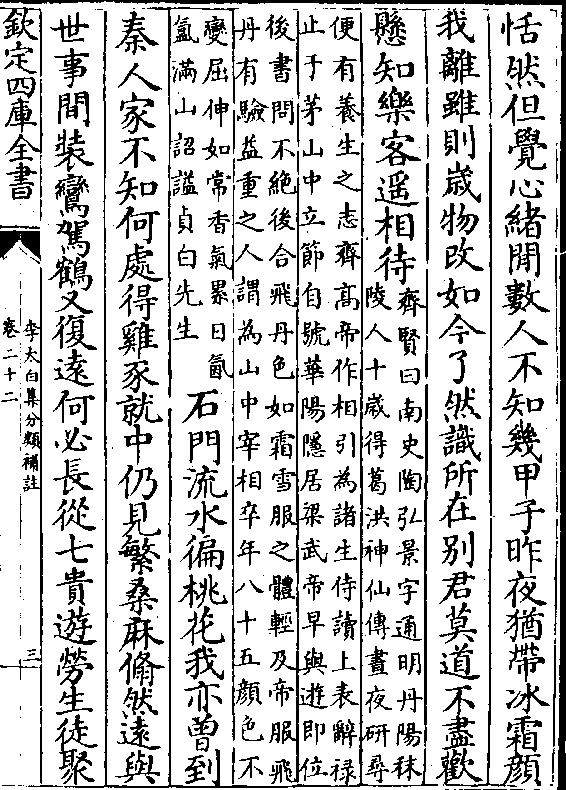 恬然但覺心緒閒數人不知幾甲子昨夜猶帶冰霜顔
我離雖則歲物改如今了然識所在别君莫道不盡歡
懸知樂客遥相待
齊賢曰南史陶弘景字通明丹陽秣
陵人十歲得葛洪神仙傳晝夜研尋
便有養生之志齊髙帝作相引為諸生侍讀上表辭祿
止于茅山中立節自號華陽隱居梁武帝早與遊即位
後書問不絶後合飛丹色如霜雪服之體輕及帝服飛
丹有驗益重之人謂為山中宰相卒年八十五顔色不
變屈伸如常香氣累日氤
氲滿山詔謚貞白先生
石門流水徧桃花我亦曾到
秦人家不知何處得雞豕就中仍見繁桑麻翛然遠與
世事間裝鸞駕鶴又復遠何必長從七貴遊勞生徒聚
欽定四庫全書
李太白集分類補註
卷二十二
三